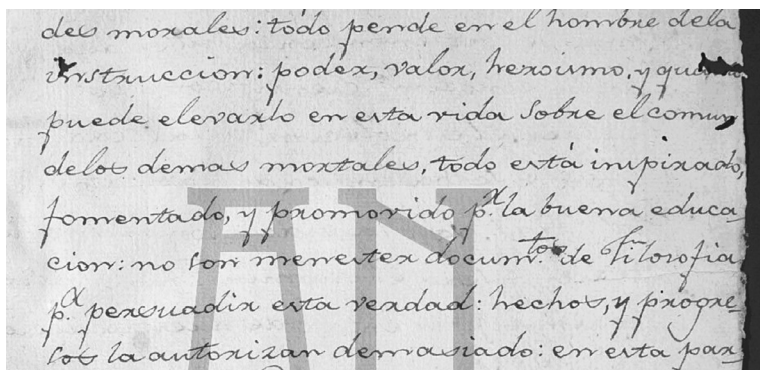 des morales: todo pende en el hombre dela
instruccion: poder, valor, heroismo, y qu
puede elevarlo en esta vida sobre el comun
delos demas mortales, todo está inspirado,
fomentado, y promovido p.r la buena educa_
cion: no son menester docum.tos de Filosofia
p.a persuadir esta verdad: hechos, y progre_
sos la autorizan demasiado: en esta par_
AN